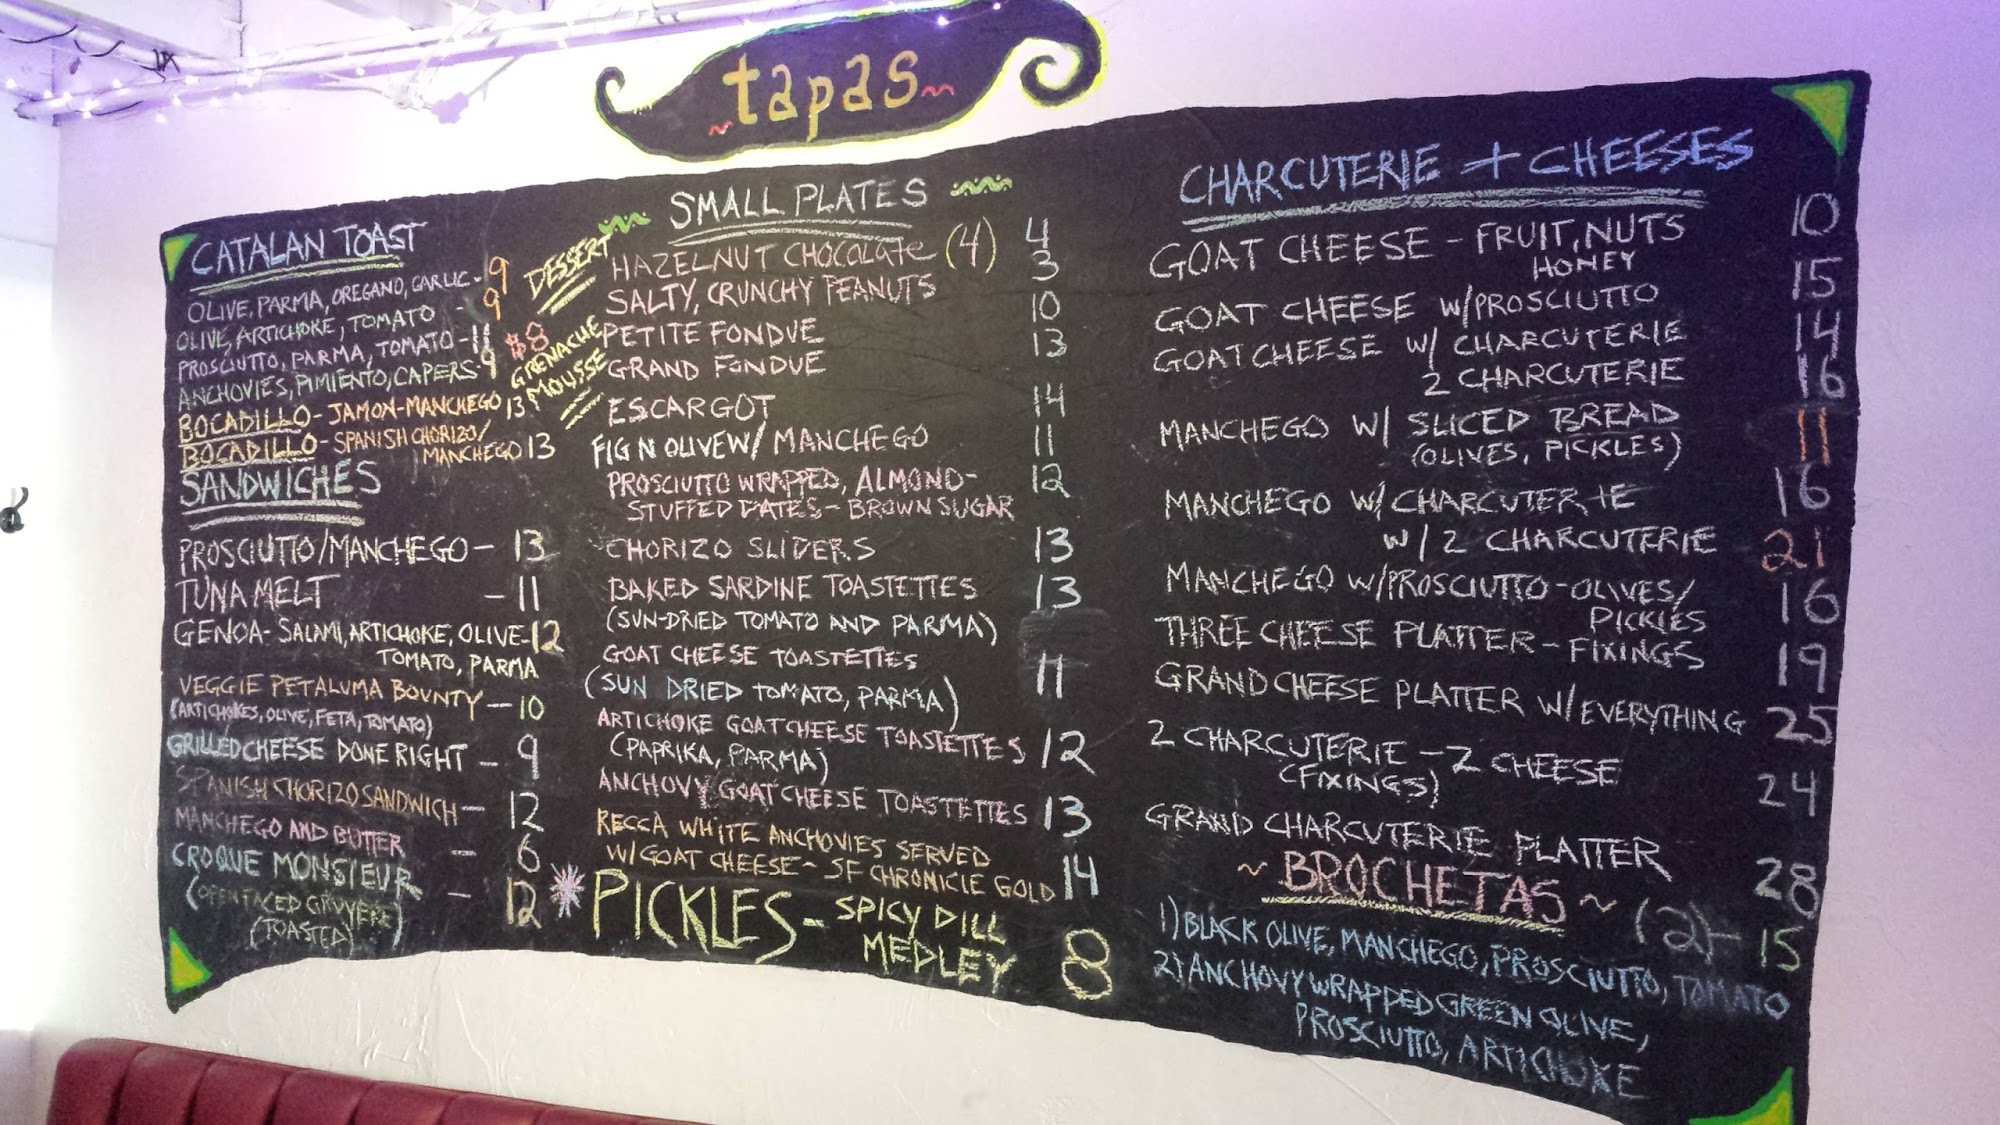 ~tapas~
CATALAN TOAST
OLIVE, PARMA, OREGANO, GARLIC - 9
OLIVE, ARTICHOKE, TOMATO - 9
PROSCIUTTO, PARMA, TOMATO - 11
ANCHOVIES, PIMIENTO, CAPERS 9
BOCADILLO - JAMON-MANCHEGO 13
BOCADILLO - SPANISH CHORIZO/
MANCHEGO 13
SANDWICHES
PROSCIUTTO/MANCHEGO - 13
TUNA MELT - 11
GENOA - SALAMI, ARTICHOKE, OLIVE - 12
TOMATO, PARMA
VEGGIE PETALUMA BOUNTY - 10
(ARTICHOKES, OLIVE, FETA, TOMATO)
GRILLED CHEESE DONE RIGHT - 9
SPANISH CHORIZO SANDWICH - 12
MANCHEGO AND BUTTER - 6
CROQUE MONSIEUR - 12
(OPEN FACED GRUYERE)
(TOASTED)
DESSERT
$8
GRENACHE
MOUSSE
SMALL PLATES
HAZELNUT CHOCOLATE (4) 4
SALTY, CRUNCHY PEANUTS 3
PETITE FONDUE 10
GRAND FONDUE 13
ESCARGOT 14
FIG N OLIVE W/ MANCHEGO 11
PROSCIUTTO WRAPPED, ALMOND- 12
STUFFED DATES - BROWN SUGAR
CHORIZO SLIDERS 13
BAKED SARDINE TOASTETTES 13
(SUN-DRIED TOMATO AND PARMA)
GOAT CHEESE TOASTETTES 11
(SUN DRIED TOMATO, PARMA)
ARTICHOKE GOAT CHEESE TOASTETTES 12
(PAPRIKA, PARMA)
ANCHOVY GOAT CHEESE TOASTETTES 13
RECCA WHITE ANCHOVIES SERVED
W/ GOAT CHEESE - SF CHRONICIE GOLD 14
PICKLES - SPICY DILL
MEDLEY 8
CHARCUTERIE + CHEESES
GOAT CHEESE - FRUIT, NUTS 10
HONEY
GOAT CHEESE W/PROSCIUTTO 15
GOAT CHEESE W/ CHARCUTERIE 14
2 CHARCUTERIE 16
MANCHEGO W/ SLICED BREAD 11
(OLIVES, PICKLES)
MANCHEGO W/ CHARCUTERIE 16
W/ 2 CHARCUTERIE 21
MANCHEGO W/PROSCIUTTO - OLIVES/ 16
PICKLES
THREE CHEESE PLATTER - FIXINGS 19
GRAND CHEESE PLATTER W/EVERYTHING 25
2 CHARCUTERIE - 2 CHEESE 24
(FIXINGS)
GRAND CHARCUTERIE PLATTER 28
~ BROCHETAS ~ (2) - 15
1) BLACK OLIVE, MANCHEGO, PROSCIUTTO, TOMATO
2) ANCHOVY WRAPPED GREEN OLIVE,
PROSCIUTTO, ARTICHOKE